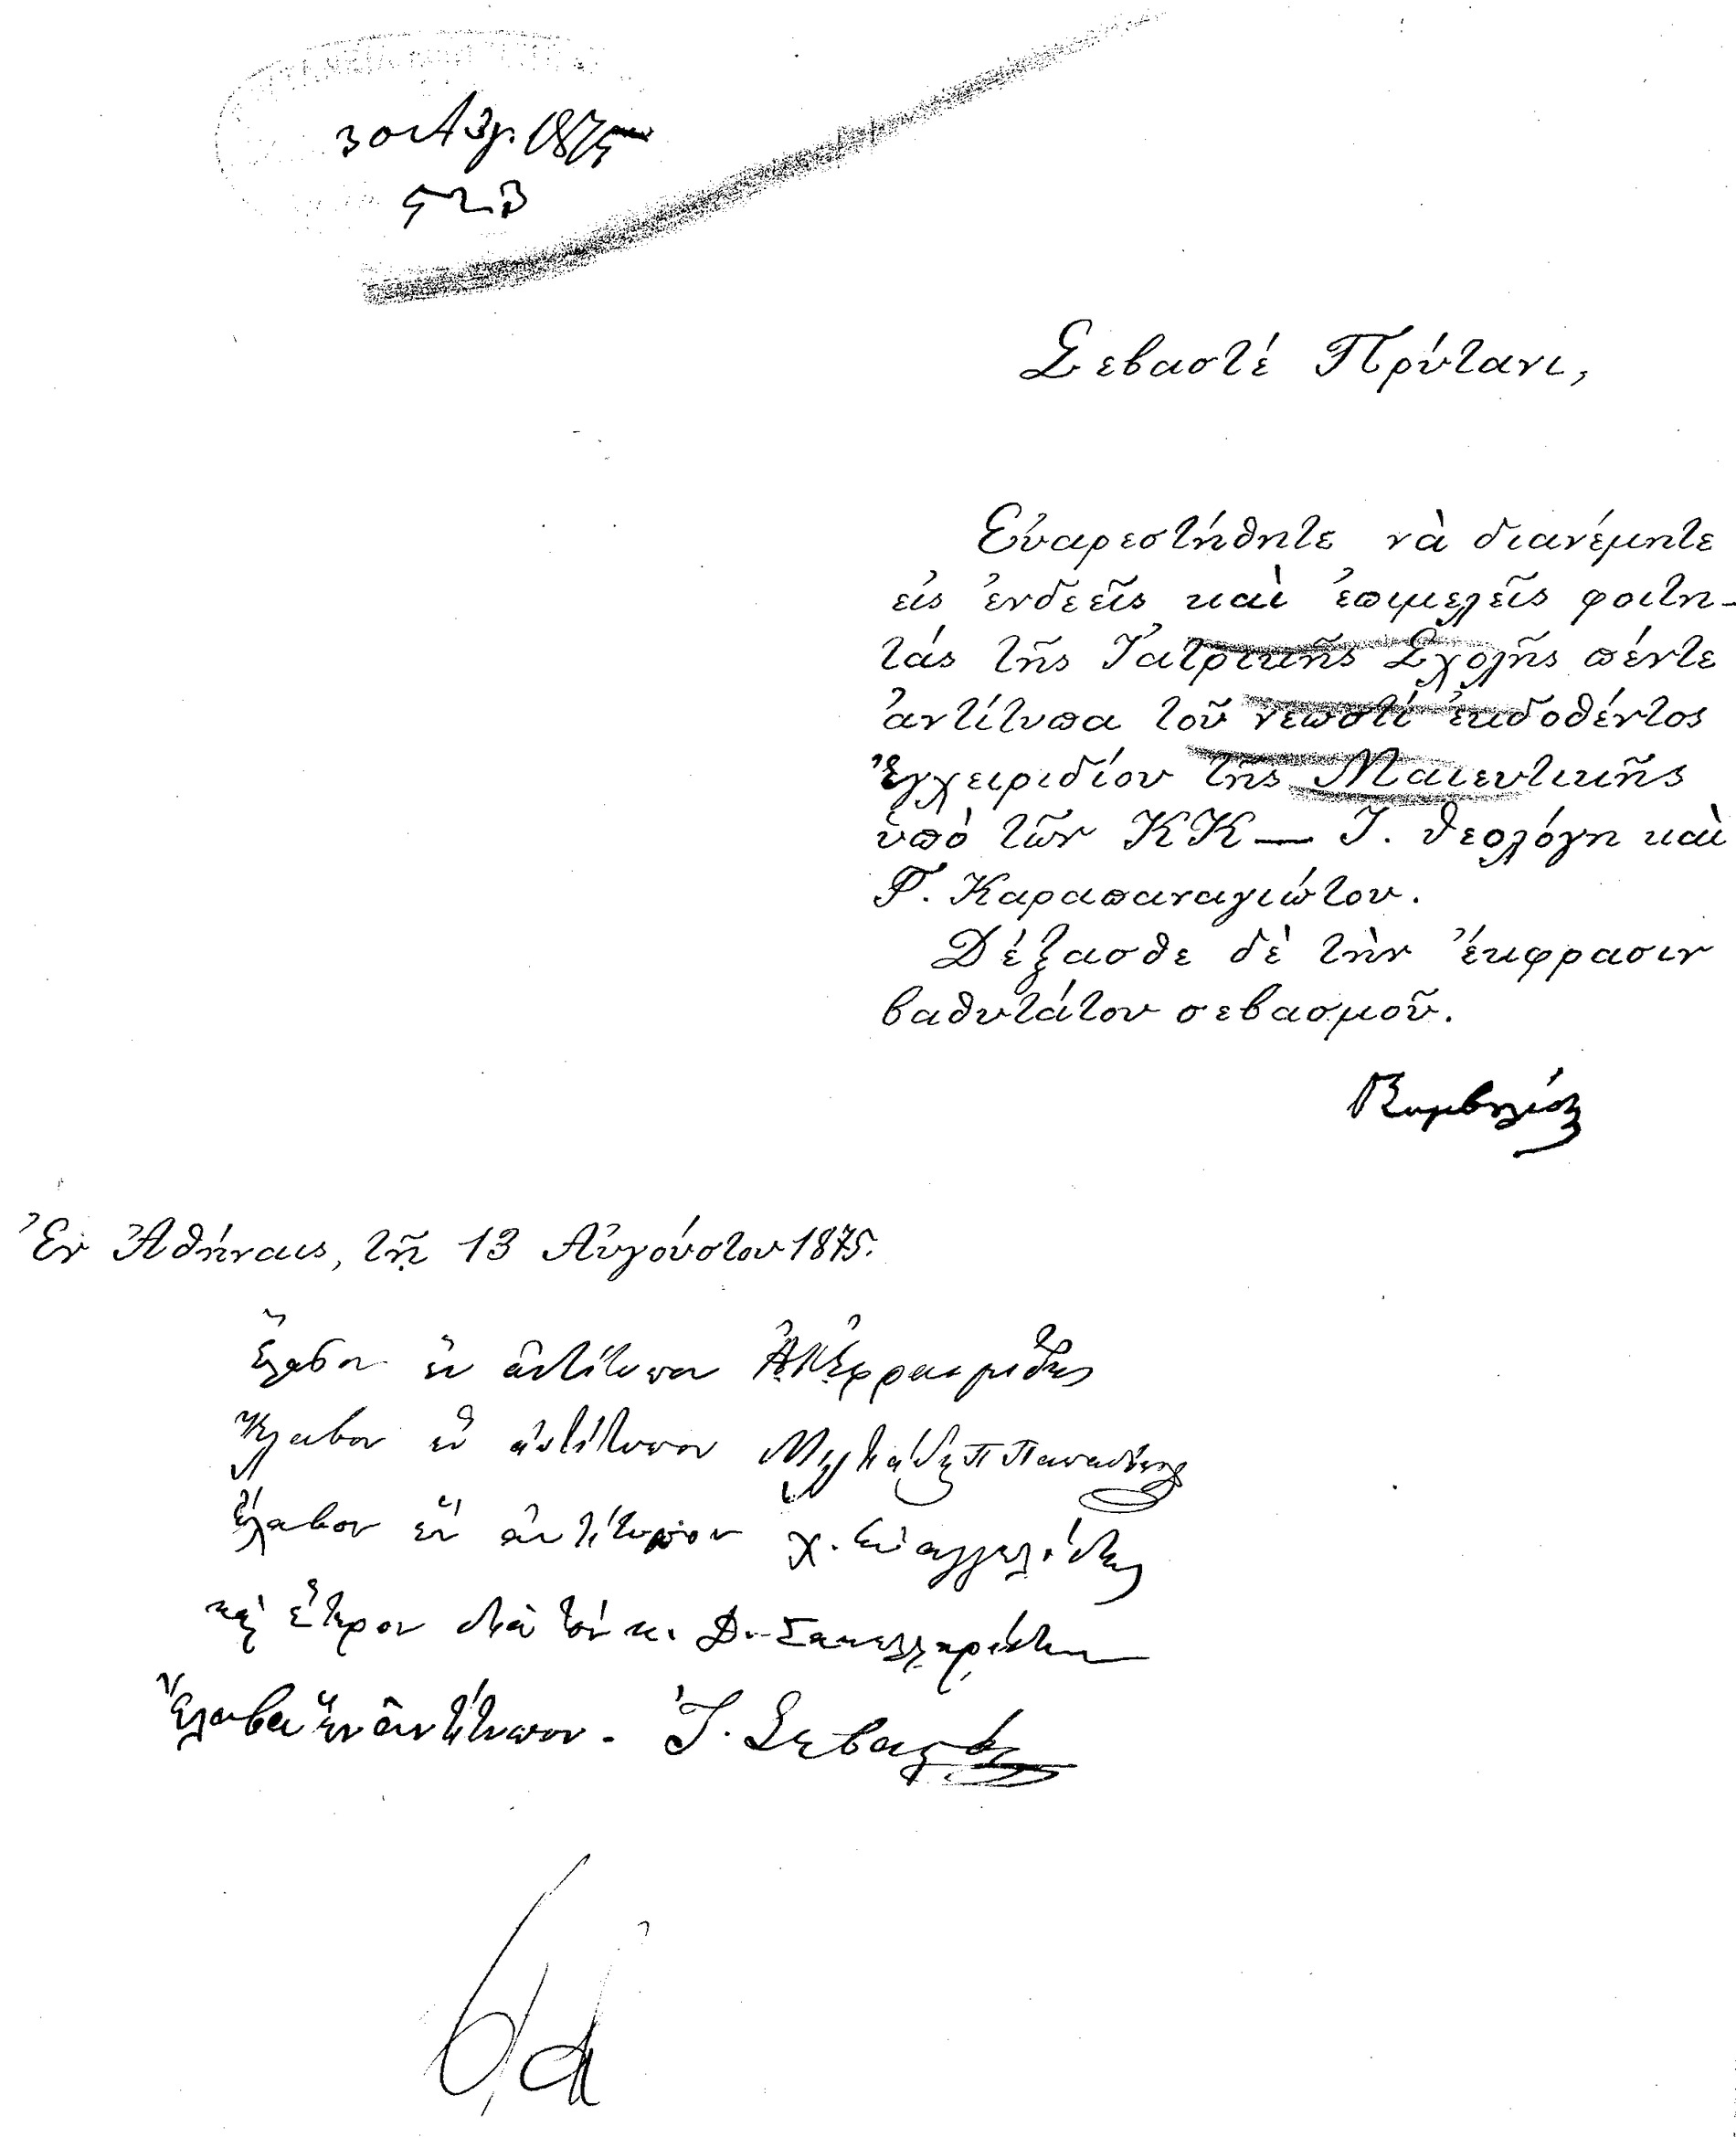 Σεβαστέ Πρύτανι,
Εὐαρεστήθητε νὰ διανέμητε
εἰς ἐνδεεῖς καὶ ἐπιμελεῖς φοιτη-
τάς τῆς Ἰατρικῆς Σχολῆς πέντε
ἀντίτυπα τοῦ νεωστί ἐκδοθέντος
Ἐγχειριδίου τῆς Μαιευτικῆς
ὑπὸ τῶν ΚΚ — Ἰ. Θεολόγη καὶ
Γ. Καραπαναγιώτου.
Δέξασθε δὲ τὴν ἔκφρασιν
βαθυτάτου σεβασμοῦ.
Ἐν Ἀθήναις, τῇ 13 Αὐγούστου 1875.
Ἔλαβον ἓν ἀντίτυπον
Ἔλαβον ἓν ἀντίτυπον
Ἔλαβον ἓν ἀντίτυπον Χ. Εὐαγγελίδης
καὶ ἕτερον διὰ τὸν κ. Δ. Σακελλαρίδην
Ἔλαβα ἓν ἀντίτυπον.